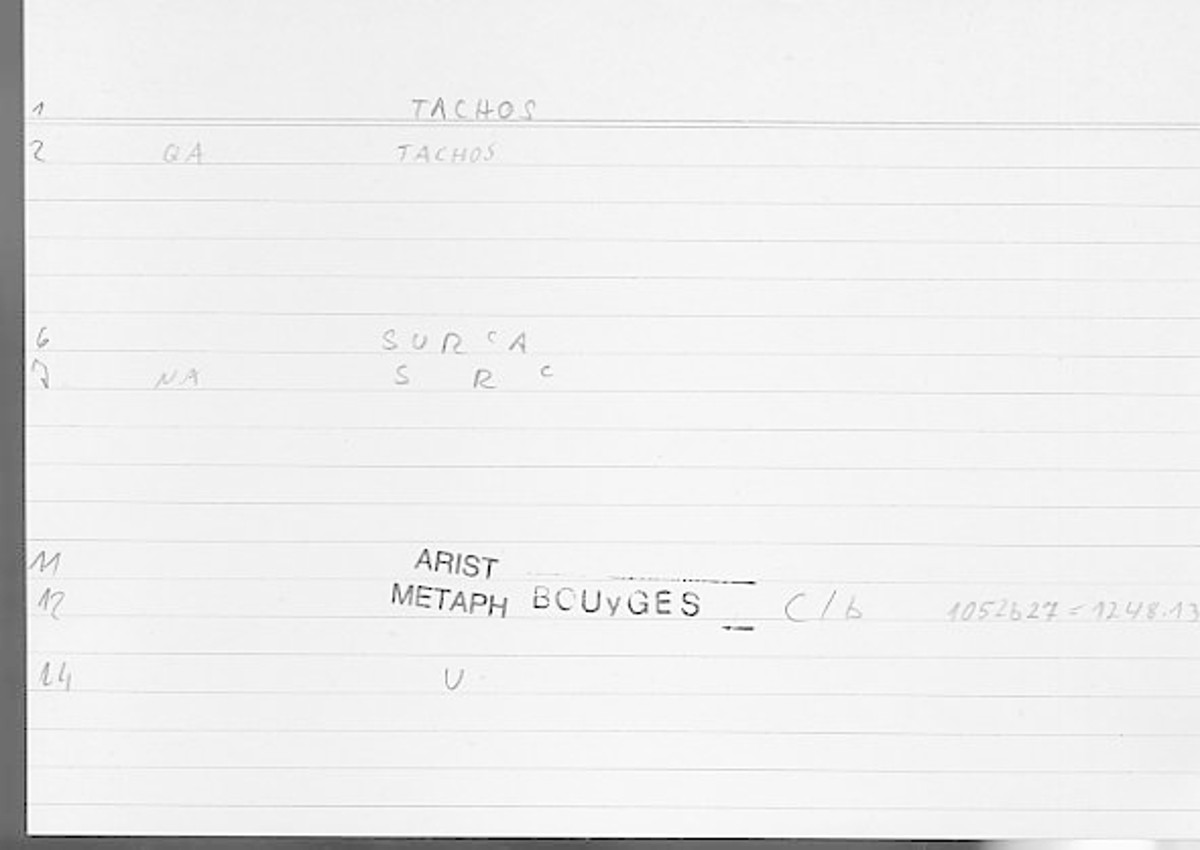 1 TACHOS
2 QA TACHOS
6 SURᶜA
7 NA S R ᶜ
11 ARIST
12 METAPH BOUyGES C/b 1052b27 = 1248.13
14 U